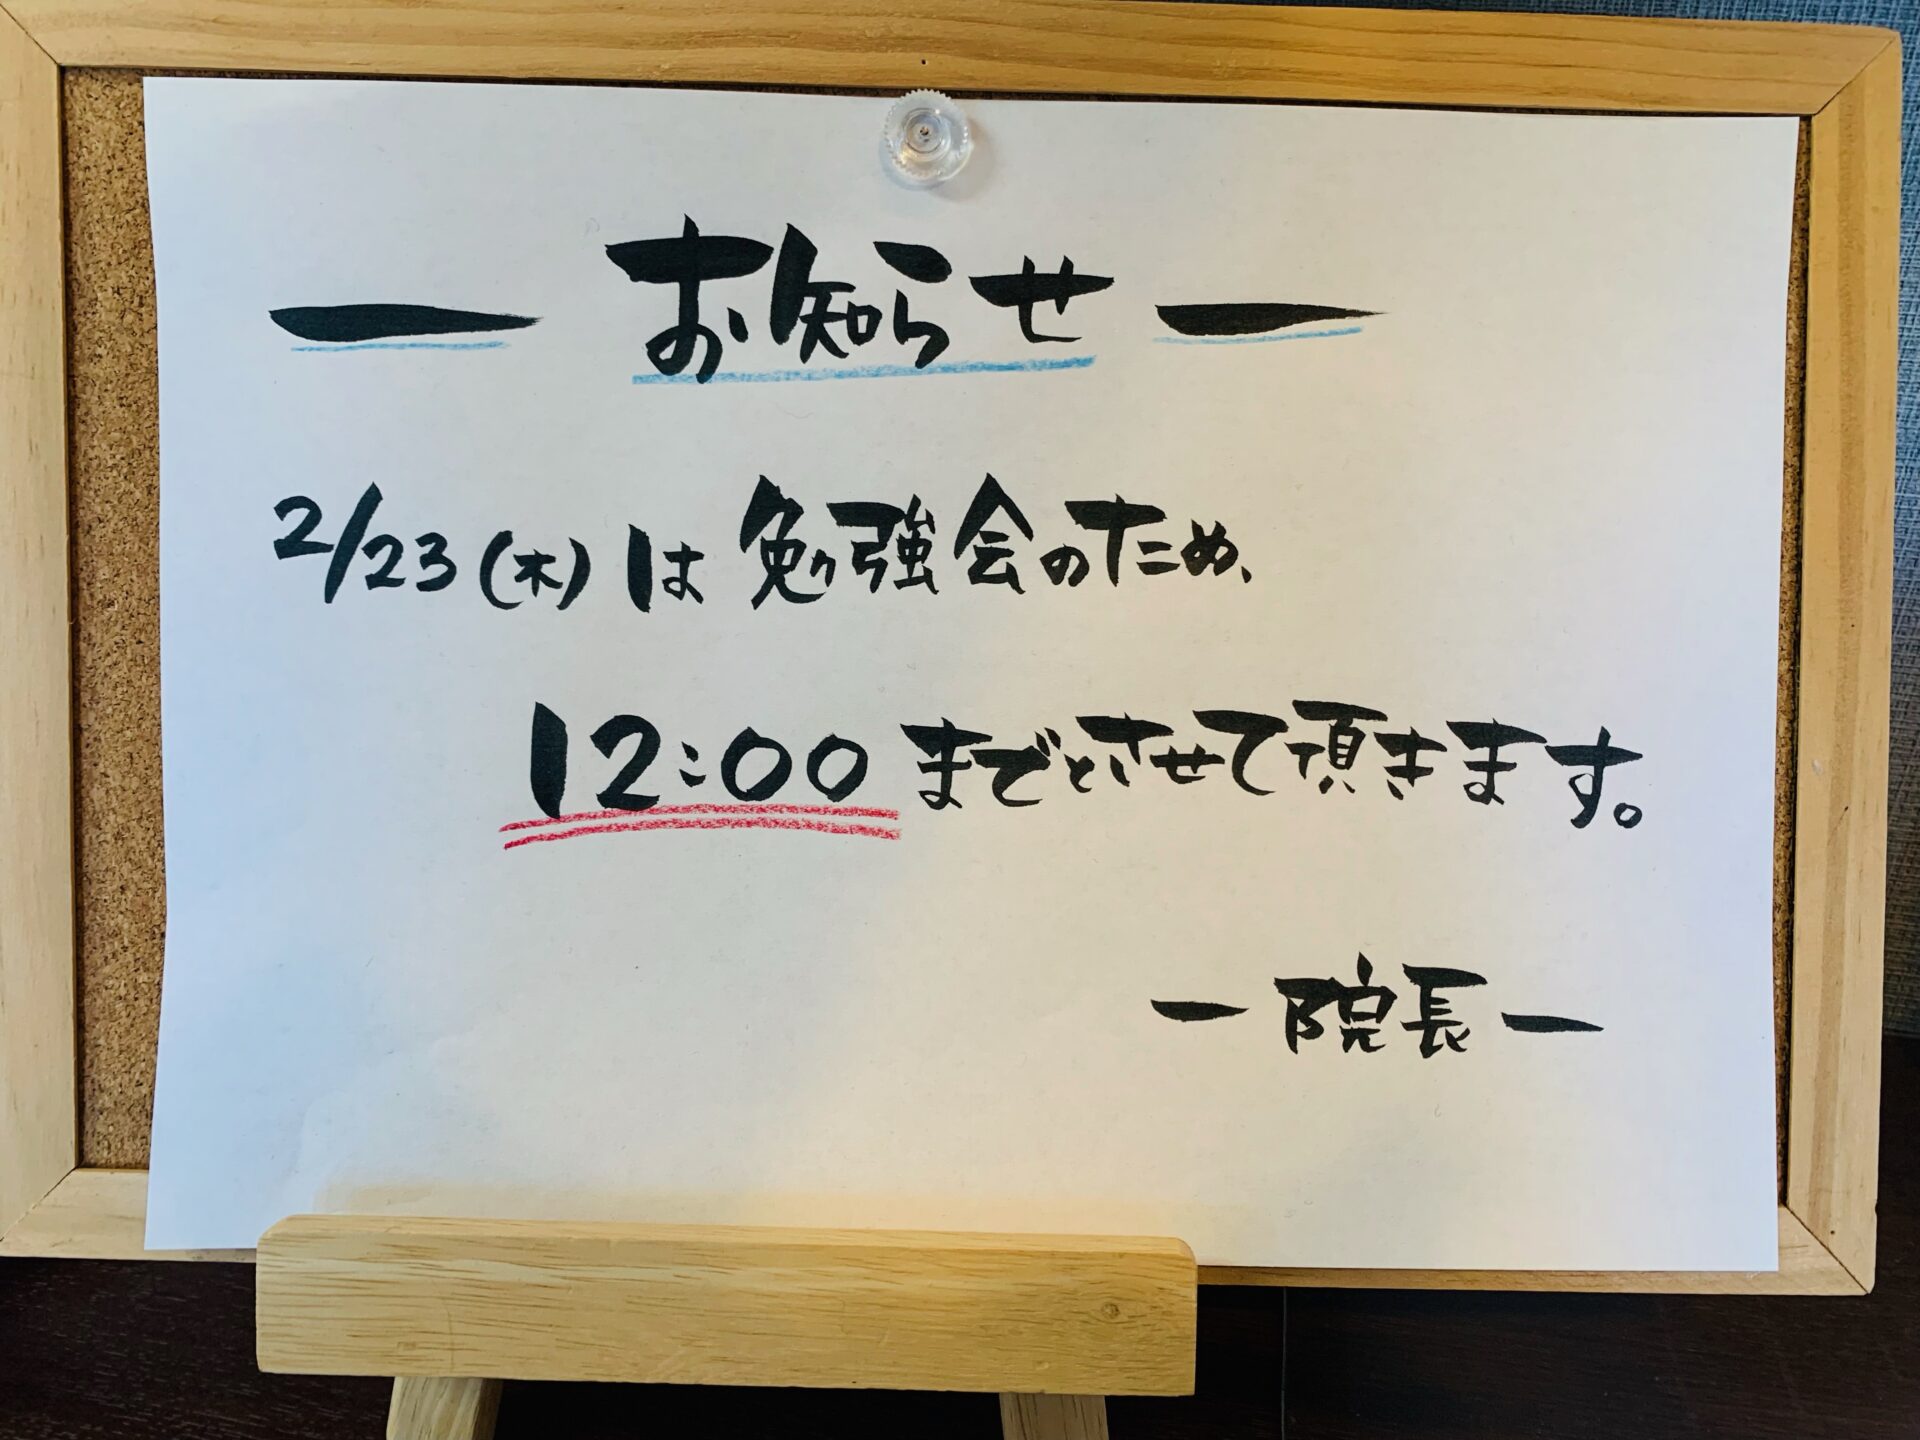 — お知らせ —
2/23(木)は勉強会のため、
12:00までとさせて頂きます。
— 院長 —